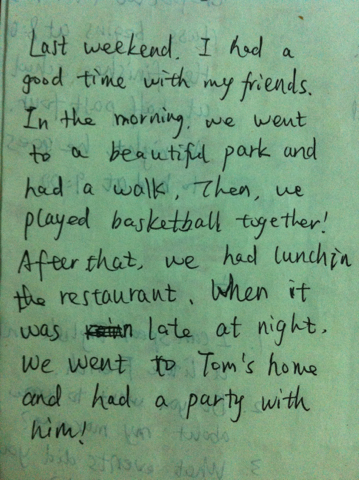 Last weekend, I had a
good time with my friends.
In the morning, we went
to a beautiful park and
had a walk, Then, we
played basketball together!
After that, we had lunch in
the restaurant. When it
was late at night,
we went to Tom's home
and had a party with
him!